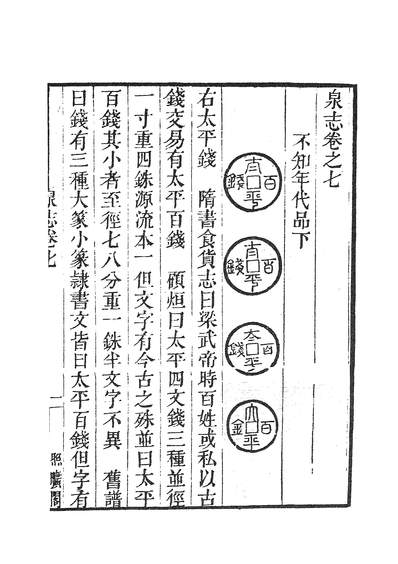 泉志卷之七
不知年代品下
太平百錢
太平百錢
太平百錢
太平百金
右太平錢　隋書食貨志曰梁武帝時百姓或私以古
錢交易有太平百錢　顧烜曰太平四文錢三種並徑
一寸重四銖源流本一但文字有今古之殊並曰太平
百錢其小者至徑七八分重一銖半文字不異　舊譜
曰錢有三種大篆小篆隸書文皆曰太平百錢但字有
泉志卷七　一　照曠閣